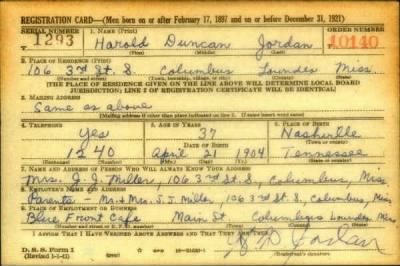 REGISTRATION CARD—(Men born on or after February 17, 1897 and on or before December 31, 1921)
SERIAL NUMBER 1. NAME (Print) ORDER NUMBER
1293 Harold Duncan Jordan 10140
(First) (Middle) (Last)
2. PLACE OF RESIDENCE (Print)
106 3rd St. S. Columbus Lowndes Miss.
(Number and street) (Town, township, village, or city) (County) (State)
[THE PLACE OF RESIDENCE GIVEN ON THE LINE ABOVE WILL DETERMINE LOCAL BOARD
JURISDICTION; LINE 2 OF REGISTRATION CERTIFICATE WILL BE IDENTICAL]
3. MAILING ADDRESS
Same as above
[Mailing address if other than place indicated on line 2. If same insert word same]
4. TELEPHONE 5. AGE IN YEARS 6. PLACE OF BIRTH
Yes 37 Nashville
DATE OF BIRTH (Town or county)
1240 April 21 1904 Tennessee
(Mo.) (Day) (Yr.) (State or country)
7. NAME AND ADDRESS OF PERSON WHO WILL ALWAYS KNOW YOUR ADDRESS
Mrs. J. J. Miller, 106 3rd St. S., Columbus, Miss
8. EMPLOYER'S NAME AND ADDRESS
Parents - Mr. & Mrs. J. J. Miller, 106 3rd St. S., Columbus, Miss
9. PLACE OF EMPLOYMENT OR BUSINESS
Blue Front Cafe Main St. Columbus Lowndes Miss.
(Number and street or R. F. D. number) (Town) (County) (State)
I AFFIRM THAT I HAVE VERIFIED ABOVE ANSWERS AND THAT THEY ARE TRUE.
D. S. S. Form 1
(Revised 1-1-42) (over)